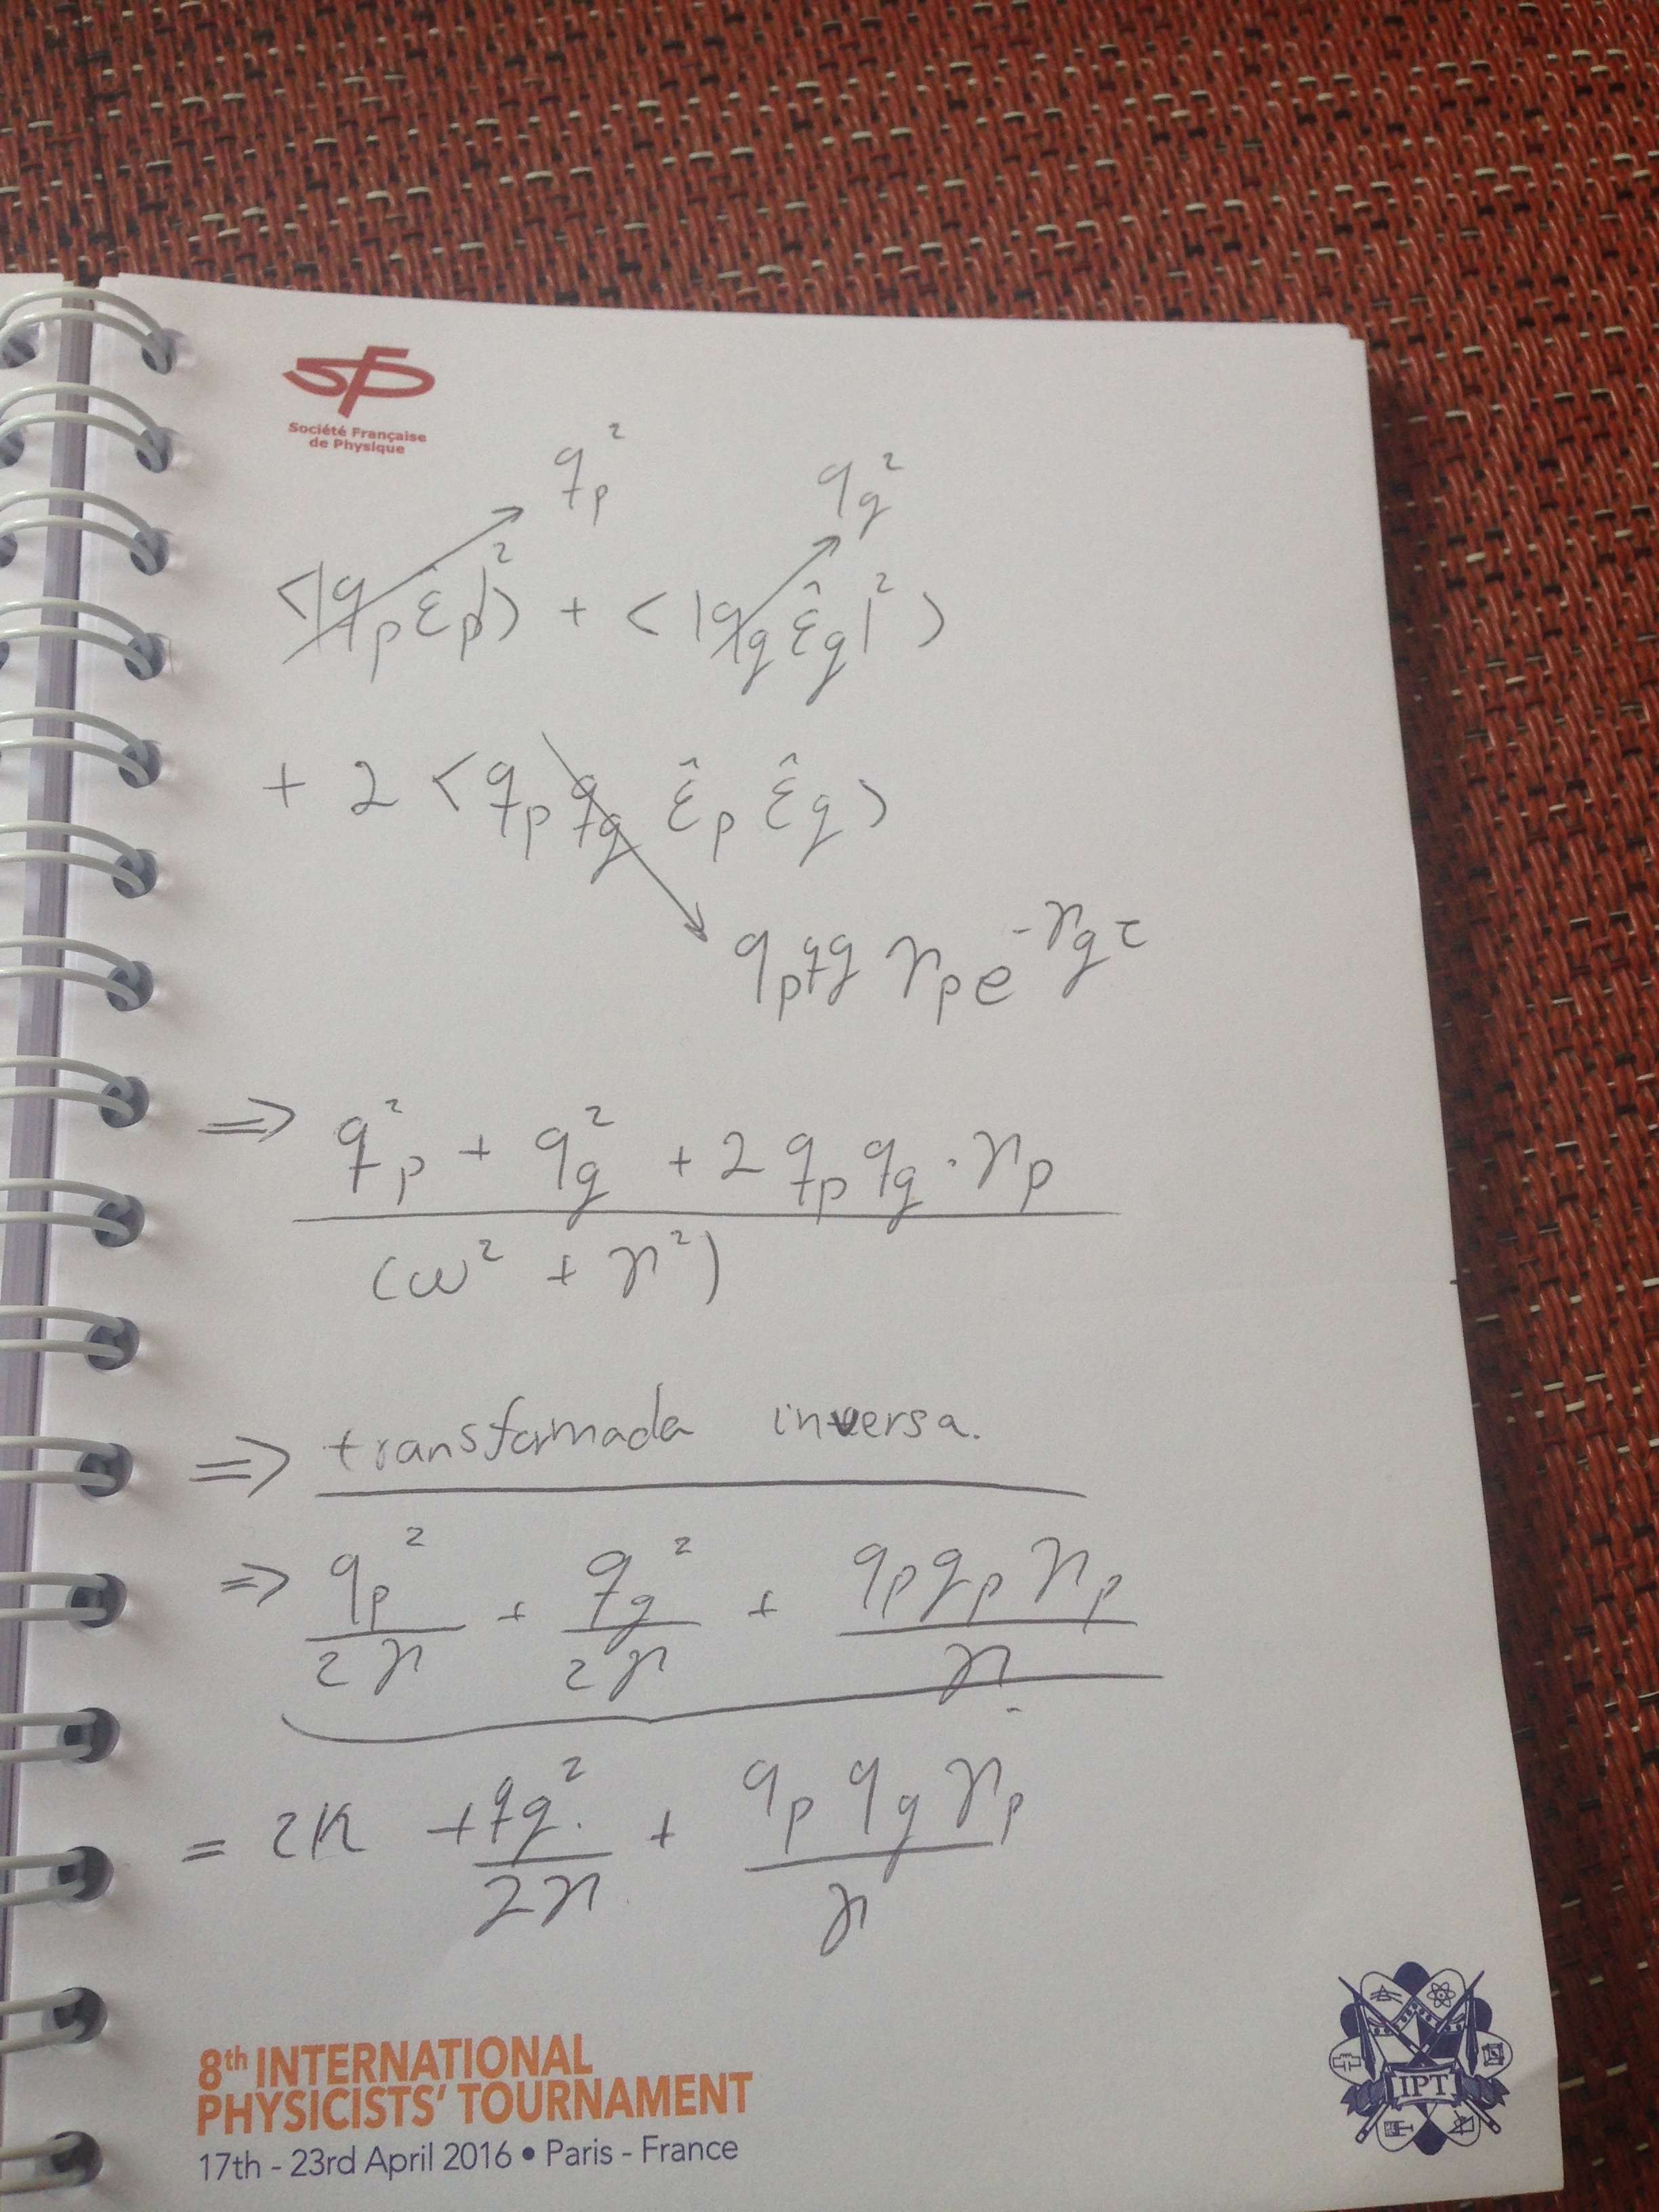 sfp
Société Française
de Physique
q_p² q_g²
<|q_p ε̂_p|²> + <|q_g ε̂_g|²>
+ 2 <q_p q_g ε̂_p ε̂_g>
q_p q_g γ_p e^{-γ_g τ}
⇒ q_p² + q_g² + 2 q_p q_g · γ_p
(ω² + γ²)
⇒ transformada inversa.
⇒ q_p²/2γ + q_g²/2γ + q_p q_p γ_p/γ
= 2K + q_g²/2γ + q_p q_g γ_p/γ
IPT
8th INTERNATIONAL
PHYSICISTS' TOURNAMENT
17th - 23rd April 2016 • Paris - France